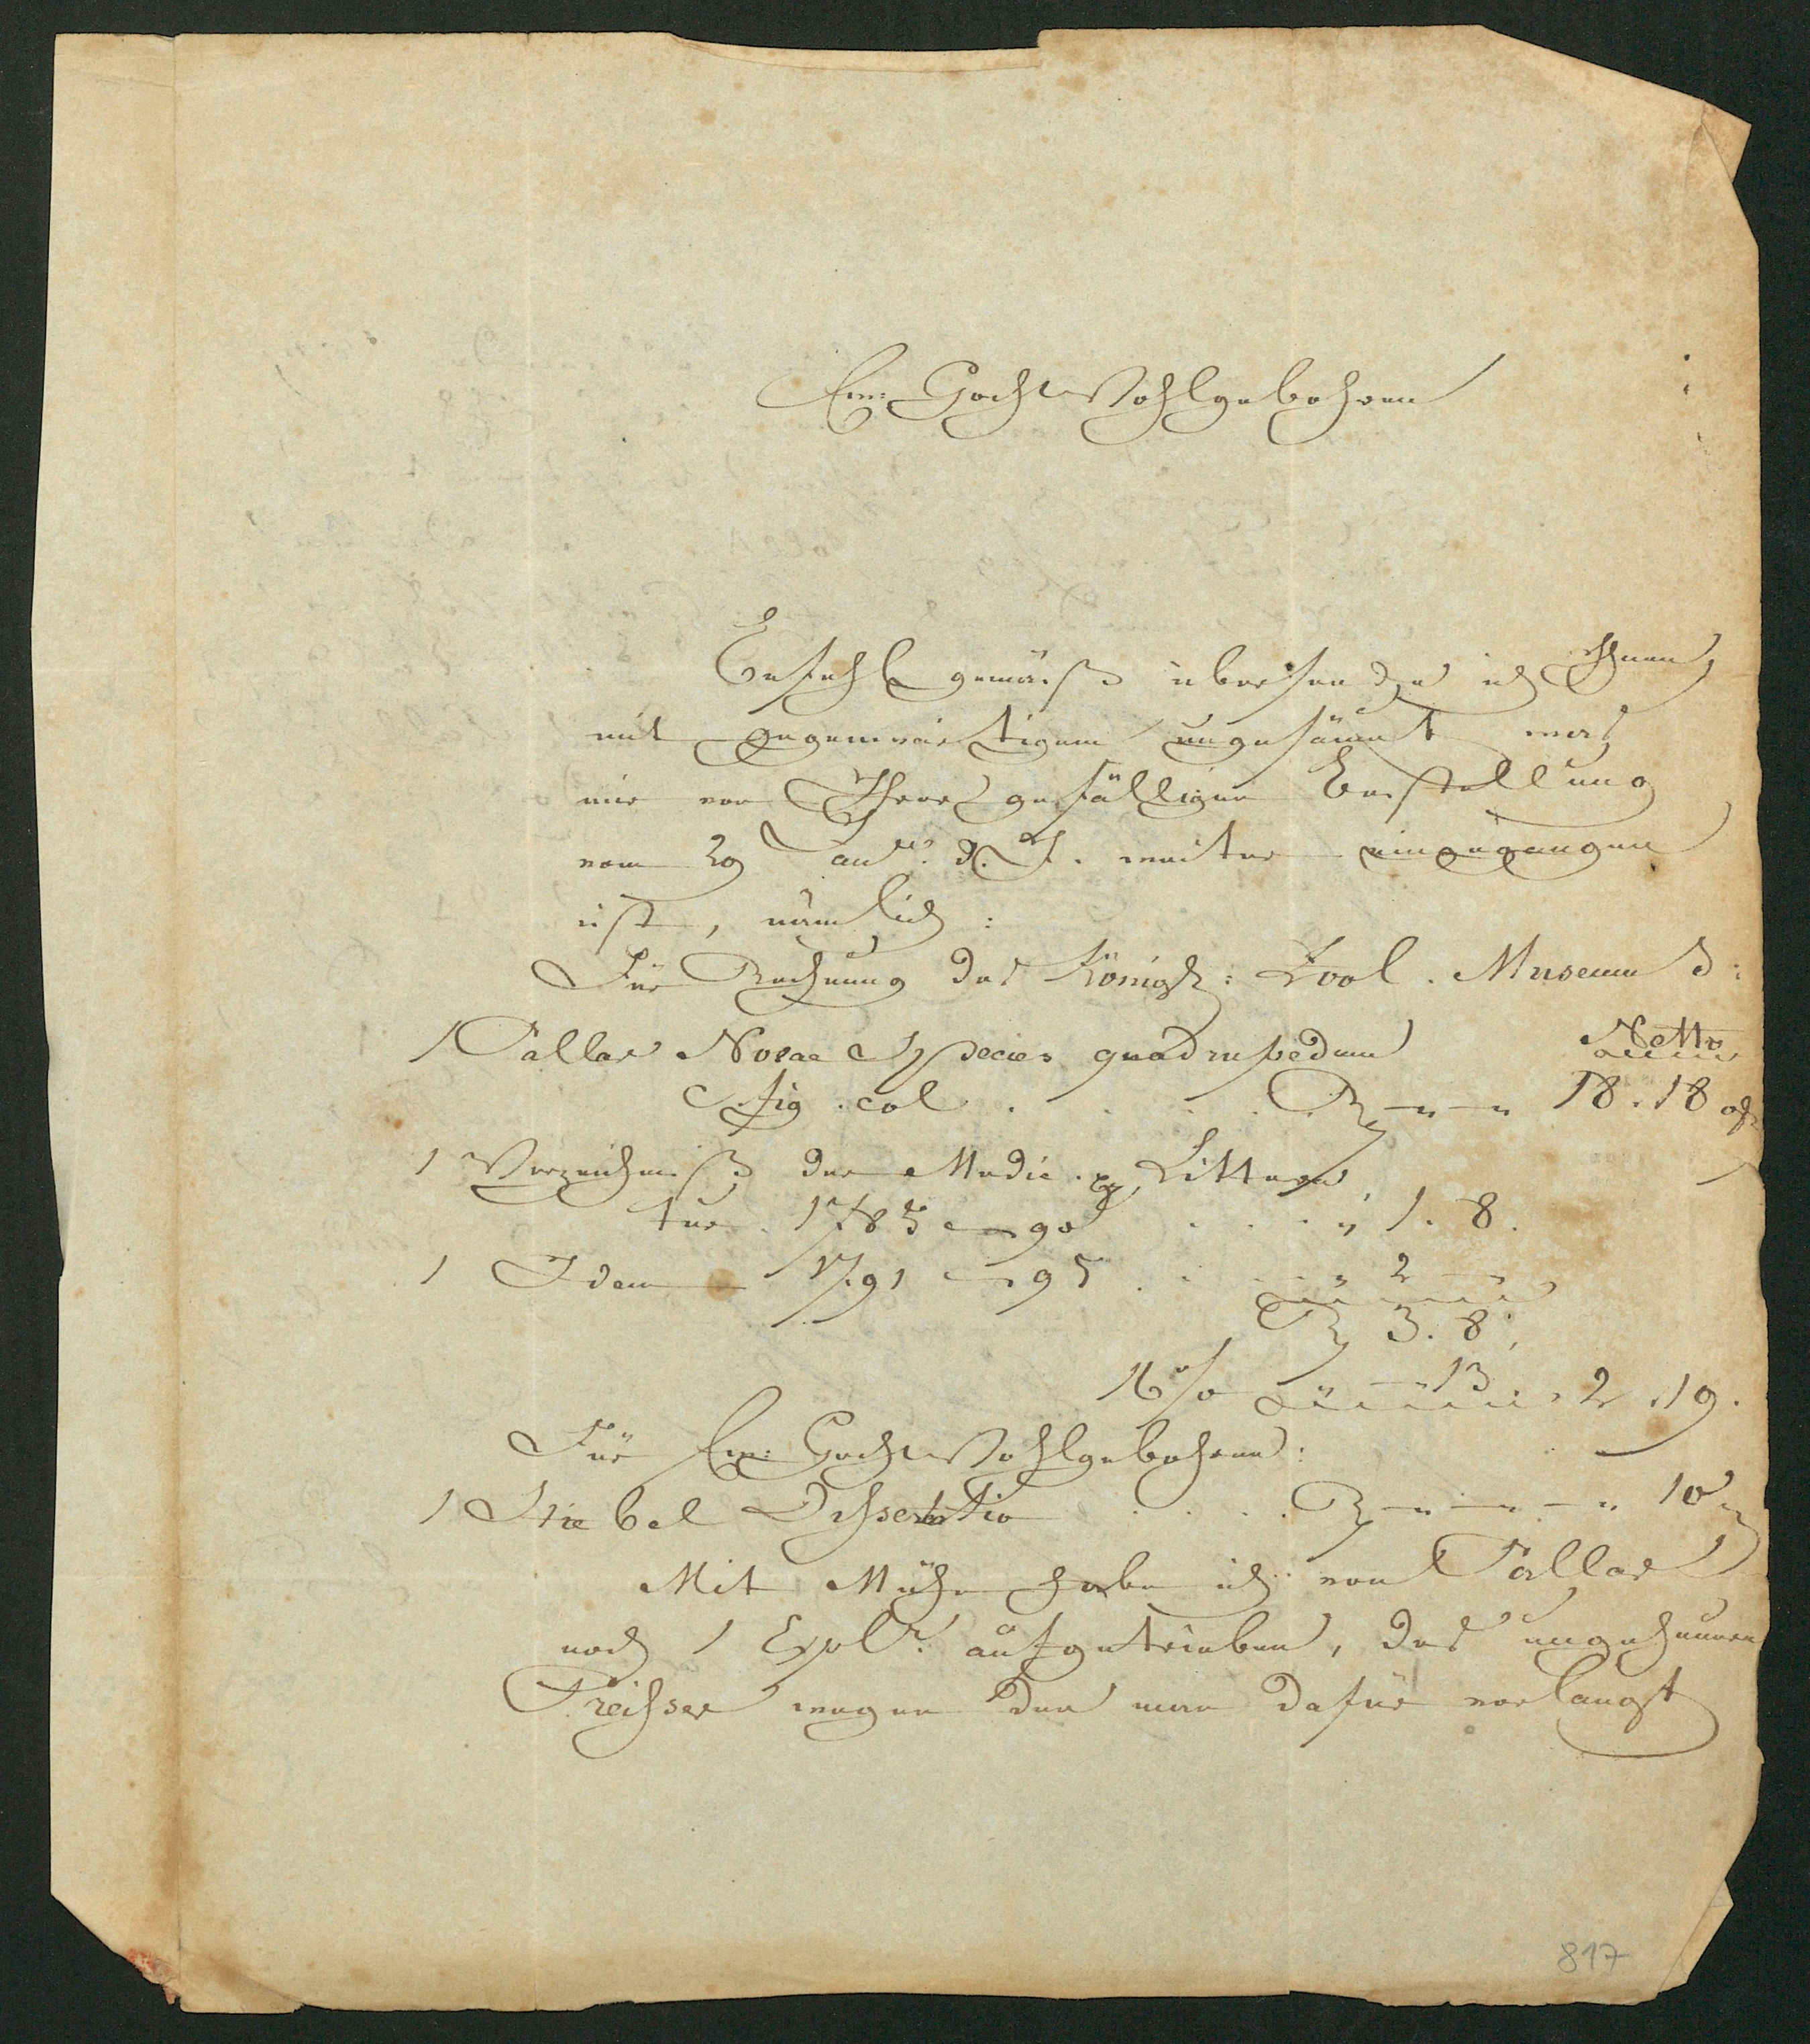 Ew: HochWohlgebohren
Befehl gemäß übersende ich Ihnen
mit gegenwärtigem ungesäumt was
mir von Ihrer gefälligen Bestellung
vom 29 Jan. d. J. weiter eingegangen
ist, nämlich:
Für Rechnung des Königl: Zool. Museums:
1 Pallas Novae Species quadrupedum Netto
c. fig. col . . . . . 18. 18
1 Verzeichniß der Medic. Littera
tur. 1785 – 90 . . . „ 1. 8.
1 Idem 1791 – 95 . . . „ 2 –
3. 8.
16 % 13. „ 2. 19.
Für Ew: HochWohlgebohren:
1 Stiebel Dissertatio . . . . 10
Mit Mühe habe ich von Pallas
noch 1 Expl. aufgetrieben, des ungeheuren
Preisses wegen den man dafür verlangt
817